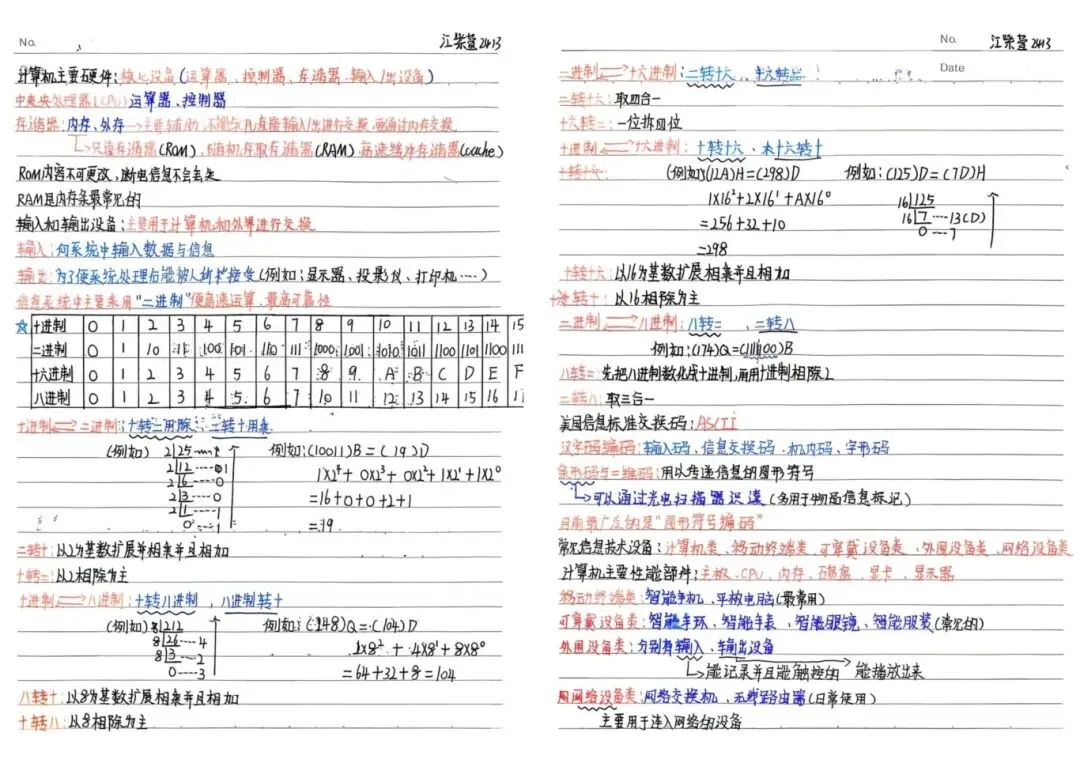 No.
江柴萱2413
计算机主要石硬件:核心设备(运算器、控制器、存储器、输入/出设备)
中央处理器(CPU)运算器、控制器
存储器:内存、外存→主要辅助,不能与CPU直接输入/出进行交换,要通过内存交换
↳只读存储器(ROM)、随机存取存储器(RAM)高速缓冲存储器(cache)
ROM内容不可更改,断电信息不会丢失
RAM是内存条最常见的
输入和输出设备:主要用于计算机和外界进行交换
输入:向系统中输入数据与信息
输出:为了便系统处理后能被人所接受(例如:显示器、投影仪、打印机…)
信息系统中主要采用“二进制”便高速运算、最高可靠性
☆ 十进制 0 1 2 3 4 5 6 7 8 9 10 11 12 13 14 15
二进制 0 1 10 11 100 101 110 111 1000 1001 1010 1011 1100 1101 1100 111
十六进制 0 1 2 3 4 5 6 7 8 9 A B C D E F
八进制 0 1 2 3 4 5 6 7 10 11 12 13 14 15 16 1
十进制⇌二进制:十转二用除、二转十用乘
(例如) 2|25 例如:(10011)B=(19)D
2|12 ----0 1
2|6 ----0
1X2⁴+0X2³+0X2²+1X2¹+1X2⁰
2|3 ----0
=16+0+0+2+1
2|1 ----1
0 ----1
=19
二转十:以2为基数扩展并相乘并且相加
十转二:以2相除为主
十进制⇌八进制:十转八进制,八进制转十
(例如) 8|212 例如:(148)Q=(104)D
8|26 ---- 4
1X8²+4X8¹+8X8⁰
8|3 ---- 2
=64+32+8=104
0 ----3
八转十:以8为基数扩展相乘并且相加
十转八:以8相除为主
No.
江柴萱2413
Date
二进制⇌十六进制:二转十六、十六转二
二转十六:取四合一
十六转二:一位拆四位
十进制⇌十六进制:十转十六、十六转十
十转十六: (例如)(12A)H=(298)D 例如:(125)D=(7D)H
1X16²+2X16¹+AX16⁰ 16|125
=256+32+10 16|7 ----13(D)
0 ----7
=298
十转十六:以16为基数扩展相乘并且相加
十六转十:以16相除为主
二进制⇌八进制:八转二、二转八
例如:(174)Q=(1111100)B
八转二:先把八进制数化成十进制,再用十进制相除2
二转八:取三合一
美国信息标准交换码:ASCII
汉字码编码:输入码、信息交换码、机内码、字形码
条形码与二维码:用以传递信息的图形符号
↳可以通过光电扫描器识读(多用于物品信息标记)
目前最广泛的是“图形符号编码”
常见信息技术设备:计算机类、移动终端类、可穿戴设备类、外围设备类、网络设备类
计算机主要性能部件:主板、CPU、内存、硬盘、显卡、显示器
移动终端类:智能手机、平板电脑(最常用)
可穿戴设备类:智能手环、智能手表、智能眼镜、智能服装(常见的)
外围设备类:分别有输入、输出设备
↳能记录并且能触控的 能播放出来
网络设备类:网络交换机、无线路由器(日常使用)
主要用于连入网络的设备